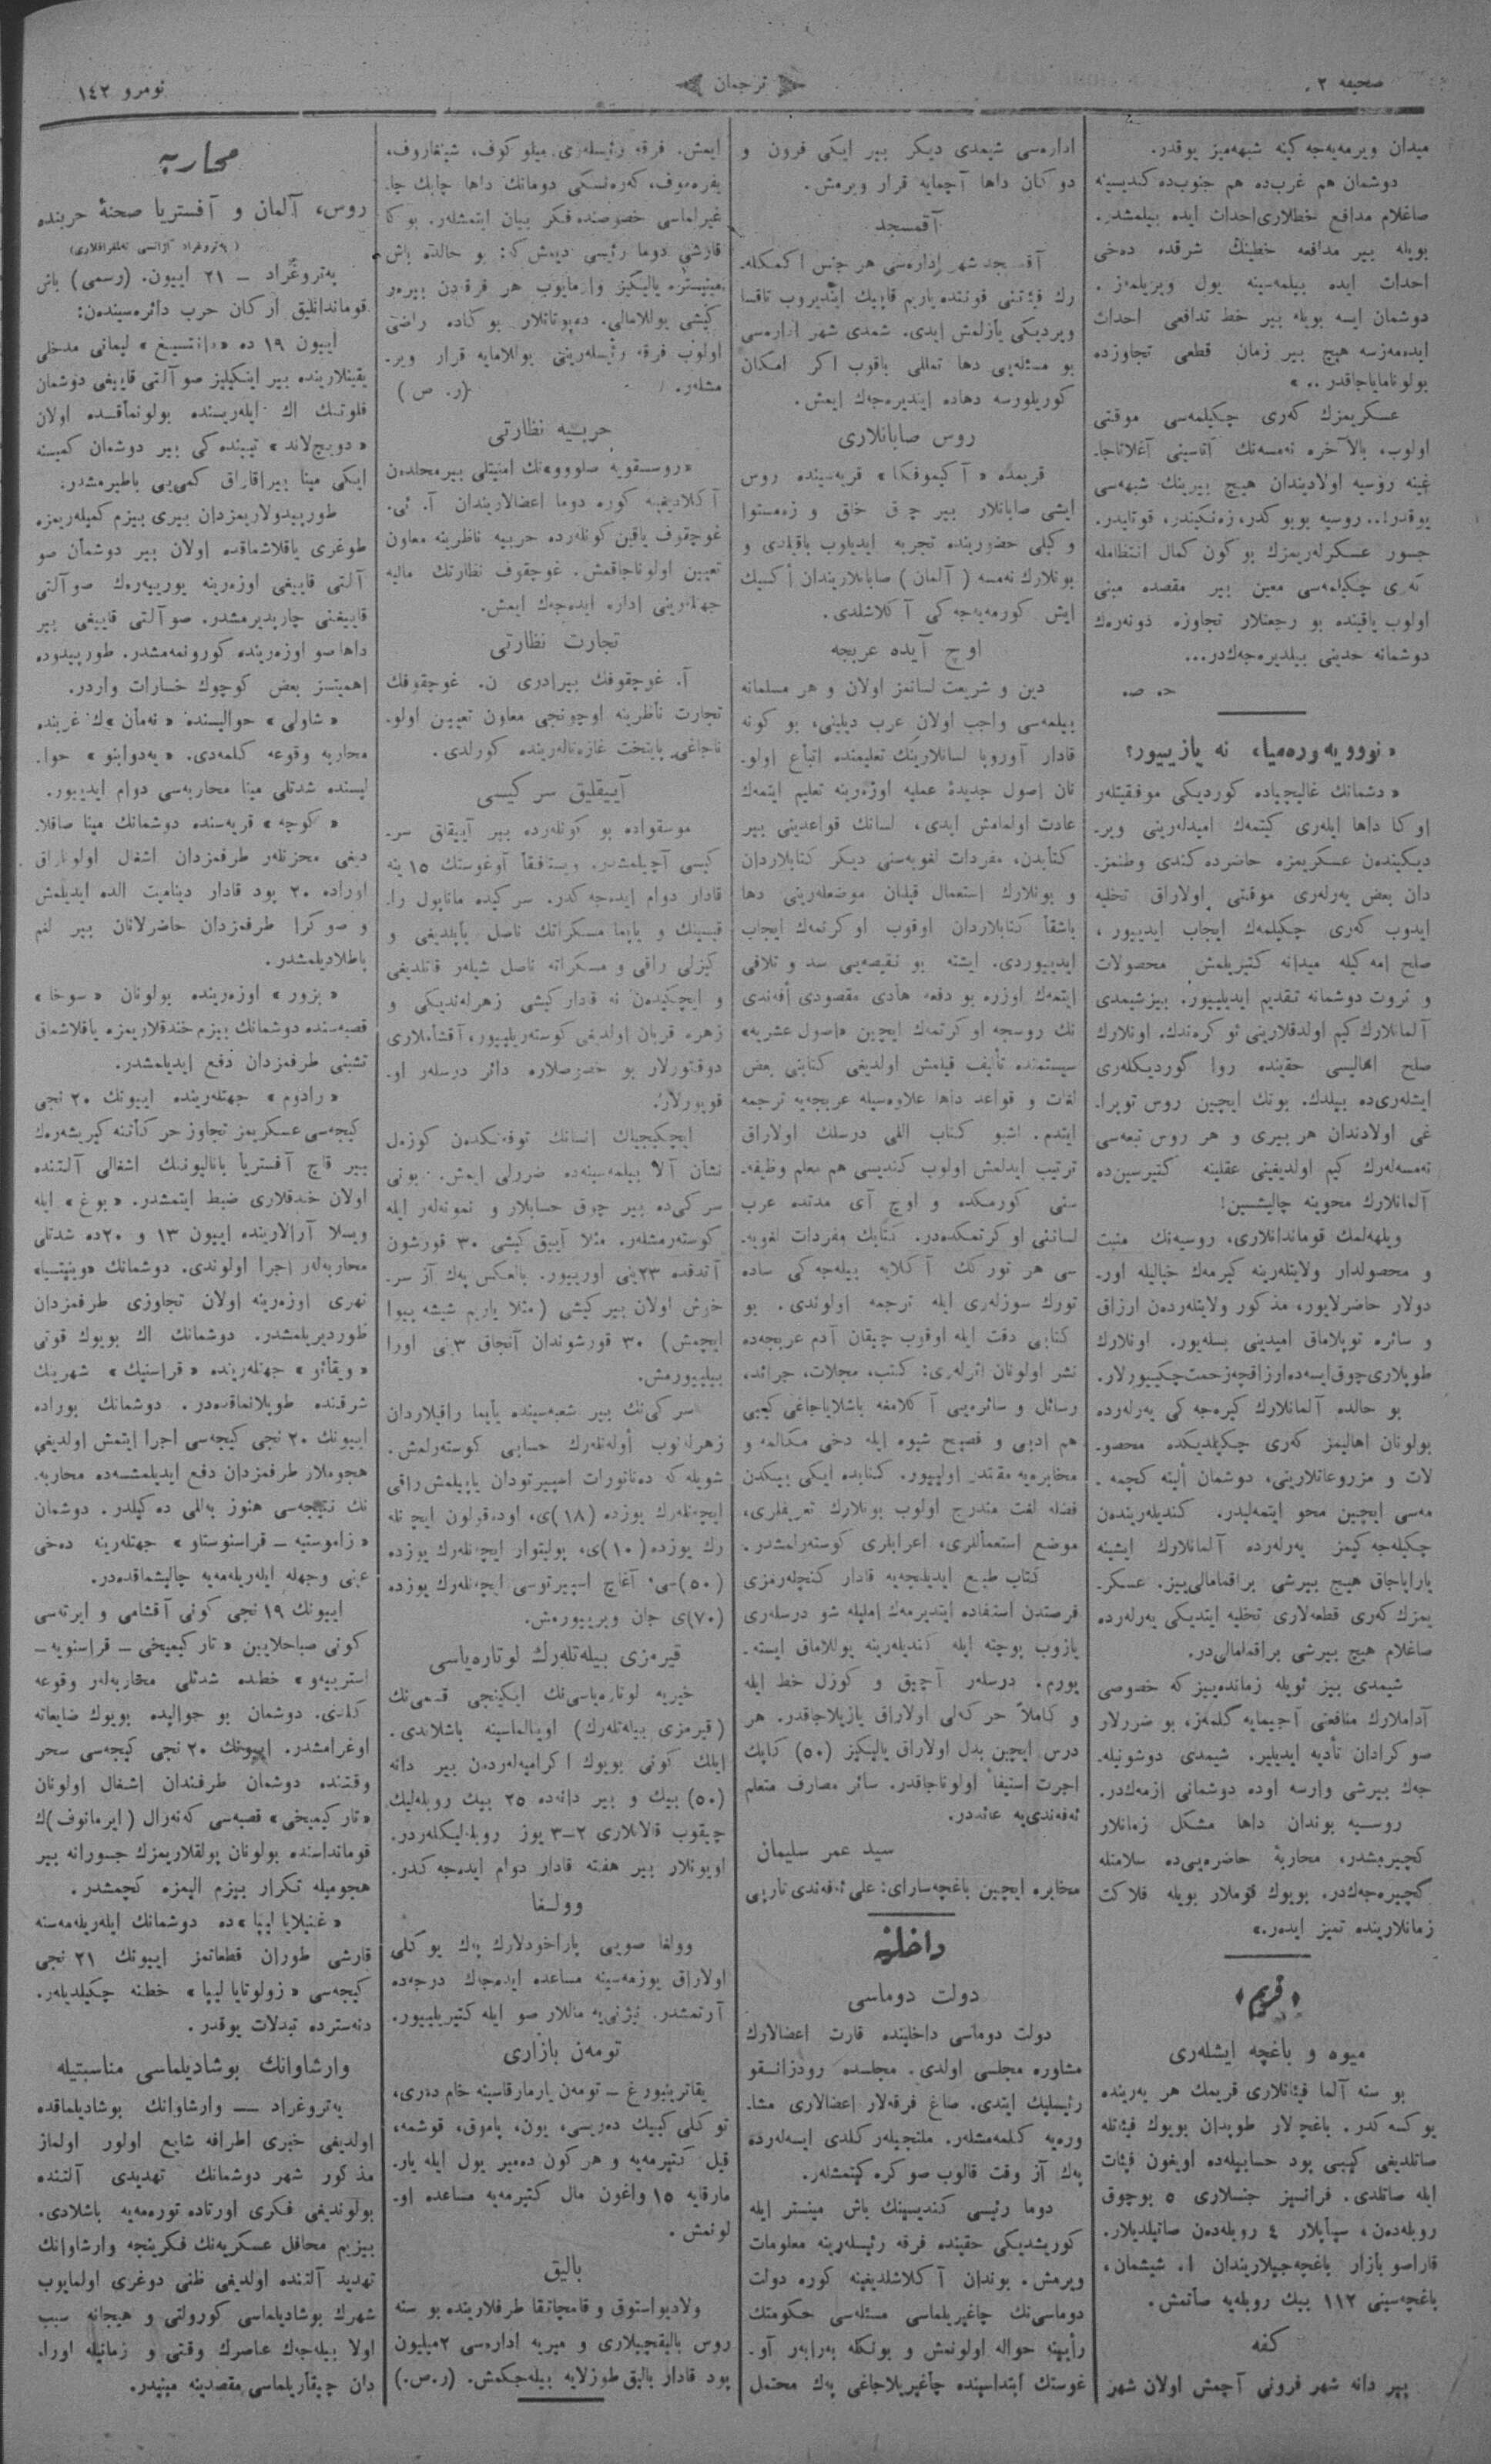 صحیفه ٢
ترجمان
نومرو ١٤٢
میدان ویرمه‌یه‌جه‌کینه شبهه‌میز یوقدر.
دوشمان هم غرب‌ده هم جنوب‌ده کندیسینه
صاغلام مدافع خطلاری احداث ایده بیلمشدر.
بویله بیر مدافعه خطینڭ شرقده ده‌خی
احداث ایده بیلمه‌سینه یول ویریلمز.
دوشمان ایسه بویله بیر خط تدافعی احداث
ایده‌مه‌زسه هیچ بیر زمان قطعی تجاوزده
بولوناما‌یاجاقدر .. »
عسکریمزڭ که‌ری چکیلمه‌سی موقتی
اولوب، بالآخره نه‌مسه‌نڭ آناسینی آغلاتاجا۔
غینه روسیه اولادیندان هیچ بیرینڭ شبهه‌سی
یوقدر!.. روسیه بویوکدر، زه‌نکیندر، قوتلیدر.
جسور عسکرله‌ریمزڭ بو کون کمال انتظامله
که‌ری چکیلمه‌سی معین بیر مقصده مبنی
اولوب یاقینده بو رجعتلار تجاوزه دونه‌رک
دوشمانه حدینی بیلدیره‌جه‌کدر...
ح. ص.
«نوویه وره‌میا» نه یازییور؟
« دشمانڭ غالیچیاده کوردیکی موفقیتلر
اوکا داها ایله‌ری کیتمه‌ک امیدله‌رینی ویر۔
دیکیندن عسکریمزه حاضرده کندی وطنمز۔
دان بعض یه‌رله‌ری موقتی اولاراق تخلیه
ایدوب که‌ری چکیلمه‌ک ایجاب ایدییور،
صلح امه‌کیله میدانه کتیریلمش محصولات
و ثروت دوشمانه تقدیم ایدیلییور. بیز شیمدی
آلمانلارڭ کیم اولدقلارینی ئوکره‌ندک. اونلارڭ
صلح اهالیسی حقینده روا کوردیکله‌ری
ایشله‌ری‌ده بیلدک. بونڭ ایچین روس توپرا۔
غی اولادندان هر بیری و هر روس تبعه‌سی
نه‌مسه‌له‌رڭ کیم اولدیغینی عقلینه کتیرسین‌ده
آلمانلارڭ محوینه چالیشسین!
ویلهه‌لمڭ قوماندانلاری، روسیه‌نڭ منبت
و محصولدار ولایتله‌رینه کیرمه‌ک خیالیله اور۔
دولار حاضرلایور، مذکور ولایتله‌رده‌ن ارزاق
و سائره توپلاماق امیدینی بسله‌یور. اونلارڭ
طوپلاری چوق ایسه‌ده ارزاقچه زحمت چکییورلار.
بو حالده آلمانلارڭ کیره‌جه‌کی یه‌رله‌رده
بولونان اهالیمز که‌ری چکیلدیکده محصو۔
لات و مزروعاتلارینی، دوشمان ألینه کچمه۔
مه‌سی ایچین محو ایتمه‌لیدر. کندیله‌ریندن
چکیله‌جه‌کیمز یه‌رله‌رده آلمانلارڭ ایشینه
یارایاجاق هیچ بیرشی براقمامالی‌ییز. عسکر۔
یمزڭ که‌ری قطعه‌لاری تخلیه ایتدیکی یه‌رله‌رده
صاغلام هیچ بیرشی براقمامالی‌در.
شیمدی بیز ئویله زمانده‌ییز که خصوصی
آداملارڭ منافعنی آجیمایه کلمه‌ز، بو ضررلار
صوکرادان تأدیه ایدیلیر. شیمدی دوشونیله۔
جه‌ک بیرشی وارسه اوده دوشمانی ازمه‌کدر.
روسیه بوندان داها مشکل زمانلار
کچیرمشدر، محاربهٔ حاضره‌یی‌ده سلامتله
کچیره‌جه‌کدر. بویوک قوملار بویله فلاکت
زمانلارینده تمیز ایده‌ر.»
﴿قریم﴾
میوه و باغچه ایشله‌ری
بو سنه آلما فیئاتلاری قریمڭ هر یه‌رینده
یوکسه‌کدر. باغچه‌لار طوپدان بویوک فیئاتله
صاتلدیغی کیبی پود حسابیله‌ده اویغون فیئات
ایله صاتلدی. فرانسیز جنسلاری ٥ بوچوق
روبله‌دن، سیناپلار ٤ روبله‌دن صاتیلدیلار.
قاراصو بازار باغچه‌جیلاریندان ا. شیشمان،
باغچه‌سینی ١١٢ بیڭ روبله‌یه صاتمش.
کفه
بیر دانه شهر فرونی آچمش اولان شهر
اداره‌سی شیمدی دیکر بیر ایکی فرون و
دوکان داها آچمایه قرار ویرمش.
آقمسجد
آقمسجد شهر اداره‌سی هر جنس اکمکله۔
رڭ فیئتنی فونتنده یاریم قاپیک ایندیروب تاقسا
ویردیکی یازلمش ایدی. شمدی شهر اداره‌سی
بو مسئله‌یی دها تمللی باقوب اکر امکان
کوریلورسه دهاده ایندیره‌جه‌ک ایمش.
روس صابانلاری
قریمده «آکیموفکا» قریه‌سینده روس
ایشی صابانلار بیر چوق خلق و زه‌مستوا
وکیلی حضورینده تجربه ایدیلوب باقیلدی و
بونلارڭ نه‌مسه (آلمان) صابانلاریندان أکسیک
ایش کورمه‌یه‌جه‌کی آکلاشلدی.
اوچ آیده عربجه
دین و شریعت لسانمز اولان و هر مسلمانه
بیلمه‌سی واجب اولان عرب دیلینی، بو کونه
قادار آوروپا لسانلارینڭ تعلیمنده اتباع اولو۔
نان اصول جدیدهٔ عملیه اوزه‌رینه تعلیم ایتمه‌ک
عادت اولمامش ایدی، لسانڭ قواعدینی بیر
کتابدن، مفردات لغویه‌سنی دیکر کتابلاردان
و بونلارڭ استعمال قیلنان موضعله‌رینی دها
باشقا کتابلاردان اوقوب اوکرنمه‌ک ایجاب
ایدییوردی. ایشته بو نقیصه‌یی سد و تلافی
ایتمه‌ک اوزره بو دفعه هادی مقصودی أفه‌ندی
نڭ روسجه اوکرتمه‌ک ایچین «اصول عشریه»
سیستمنده تألیف قیلمش اولدیغی کتابنی بعض
لغات و قواعد داها علاوه‌سیله عربجه‌یه ترجمه
ایتدم. اشبو کتاب اللی درسلڭ اولاراق
ترتیب ایدلمش اولوب کندیسی هم معلم وظیفه۔
سنی کورمکده و اوچ آی مدتنده عرب
لساننی اوکرتمکده‌در. کتابڭ مفردات لغویه۔
سی هر تورکڭ آکلایه بیله‌جه‌کی ساده
تورک سوزله‌ری ایله ترجمه اولوندی. بو
کتابی دقت ایله اوقوب چیقان آدم عربجه‌ده
نشر اولونان اثرله‌ری: کتب، مجلات، جرائد،
رسائل و سائره‌یی آکلامغه باشلایاجاغی کیبی
هم ادبی و فصیح شیوه ایله دخی مکالمه و
مخابره‌یه مقتدر اولییور. کتابده ایکی بیڭدن
فضله لغت مندرج اولوب بونلارڭ تعریفلری،
موضع استعماللری، اعرابلری کوسته‌رلمشدر.
کتاب طبع ایدیلنجه‌یه قادار کنجله‌رمزی
فرصتدن استفاده ایتدیرمه‌ک املیله شو درسله‌ری
یازوب پوچته ایله کندیله‌رینه یوللاماق ایسته۔
یورم. درسلر آچیق و کوزل خط ایله
و کاملاً حرکه‌لی اولاراق یازیلاجاقدر. هر
درس ایچین بدل اولاراق یالیڭز (٥٠) کاپیک
اجرت استیفا اولوناجاقدر. سائر مصارف متعلم
ئه‌فه‌ندی‌یه عائددر.
سید عمر سلیمان
مخابره ایچین باغچه‌سارای: علی ئه‌فه‌ندی تارپی
داخلیه
دولت دوماسی
دولت دوماسی داخلینده قارت اعضالارڭ
مشاوره مجلسی اولدی. مجلسده رودزانقو
رئیسلیک ایتدی. صاغ فرقه‌لار اعضالاری مشا۔
وره‌یه کلمه‌مشله‌ر. ملتجیلر کلدی ایسه‌له‌رده
په‌ک آز وقت قالوب صوکره کیتمشله‌ر.
دوما رئیسی کندیسینڭ باش مینستر ایله
کوریشدیکی حقینده فرقه رئیسله‌رینه معلومات
ویرمش. بوندان آکلاشلدیغینه کوره دولت
دوماسی‌نڭ چاغیریلماسی مسئله‌سی حکومتڭ
رأیینه حواله اولونمش و بونکله به‌رابه‌ر آو۔
غوستڭ ابتداسینده چاغیریلاجاغی په‌ک محتمل
ایمش. فرقه رئیسله‌ری میلوکوف، شینغاروف،
یفره‌موف، که‌ره‌نسکی دومانڭ داها چابک چا۔
غیرلماسی خصوصنده فکر بیان ایتمشله‌ر. بوکا
قارشی دوما رئیسی دیمش که: بو حالده باش
مینیستره یالیڭیز وارمایوب هر فرقه‌دن بیره‌ر
کیشی یوللامالی. ده‌پوتاتلار بوکاده راضی
اولوب فرقه رئیسله‌رینی یوللامایه قرار ویر۔
مشله‌ر. (ر. ص)
حربیه نظارتی
«روسسقویه صلووو»نڭ امنیتلی بیر محلدن
آکلادیغینه کوره دوما اعضالاریندان آ. ئی.
غوچقوف یاقین کونله‌رده حربیه ناظرینه معاون
تعیین اولوناجاقمش. غوچقوف نظارتڭ مالیه
جهتله‌رینی اداره ایده‌جه‌ک ایمش.
تجارت نظارتی
آ. غوچقوفڭ بیرادری ن. غوچقوفڭ
تجارت ناظرینه اوچونجی معاون تعیین اولو۔
ناجاغی پایتخت غازه‌تاله‌رینده کورلدی.
آییقلیق سرکیسی
موسقواده بو کونله‌رده بیر آییقلق سر۔
کیسی آچیلمشدر. ویستافقا آوغوستڭ ١٥ ینه
قادار دوام ایده‌جه‌کدر. سرکیده ماناپول را۔
قیسینڭ و یاپما مسکراتڭ ناصل یاپلدیغی و
کیزلی راقی و مسکراته ناصل شیله‌ر قاتلدیغی
و ایچکیدن نه قادار کیشی زهرله‌ندیکی و
زهره قربان اولدیغی کوسته‌ریلییور، آقشاملاری
دوقتورلار بو خصوصلاره دائر درسله‌ر او۔
قویورلار.
ایچکیجیلک انسانڭ توفه‌نکدن کوزه‌ل
نشان آلا بیلمه‌سینه‌ده ضررلی ایمش. بونی
سرکی‌ده بیر چوق حسابلار و نمونه‌له‌ر ایله
کوسته‌رمشله‌ر. مثلا آییق کیشی ٣٠ قورشون
آتدقده ٢٣ینی اورییور. بالعکس په‌ک آز سر۔
خوش اولان بیر کیشی (مثلا یاریم شیشه پیوا
ایچمش) ٣٠ قورشوندان آنجاق ٣نی اورا
بیلییورمش.
سرکی‌نڭ بیر شعبه‌سینده یاپما راقیلاردان
زهرله‌نوب أوله‌نله‌رڭ حسابی کوسته‌رلمش.
شویله‌که ده‌ناتورات اسپیرتودان یاپیلمش راقی
ایچه‌نله‌رڭ یوزده (١٨)ی، اوده‌قولون ایچه‌نله
رڭ یوزده (١٠)ی، پولیتوار ایچه‌نله‌رڭ یوزده
(٥٠)سی، آغاچ اسپیرتوسی ایچه‌نله‌رڭ یوزده
(٧٠)ی جان ویرییورمش.
قیرمزی بیله‌تله‌رڭ لوتاره‌یاسی
خیریه لوتاره‌یاسی‌نڭ ایکینجی قسمی‌نڭ
(قیرمزی بیله‌تله‌رڭ) اوینالماسینه باشلاندی.
ایلک کونی بویوک اکرامیه‌له‌رده‌ن بیر دانه
(٥٠) بیڭ و بیر دانه‌ده ٢٥ بیڭ روبله‌لیک
چیقوب قالانلاری ٢–٣ یوز روبله‌لیکله‌ردر.
اویونلار بیر هفته قادار دوام ایده‌جه‌کدر.
وولغا
وولغا صویی پاراخودلارڭ په‌ک یوکلی
اولاراق یوزمه‌سینه مساعده ایده‌جه‌ک درجه‌ده
آرتمشدر. نیژنی‌یه ماللار صو ایله کتیریلییور.
تومه‌ن بازاری
یقاترینبورغ – تومه‌ن یارمارقاسینه خام ده‌ری،
توکلی کییک ده‌ریسی، یون، پاموق، قوشمه،
قیل کتیرمه‌یه و هر کون ده‌میر یول ایله یار۔
مارقایه ١٥ واغون مال کتیرمه‌یه مساعده او۔
لونمش.
بالیق
ولادیواستوق و قامچاتقا طرفلارینده بو سنه
روس بالیقچیلاری و میریه اداره‌سی ٢ میلیون
پود قادار بالیق طوزلایه بیله‌جکمش. (ر.ص.)
محاربه
روس، آلمان و آفستریا صحنهٔ حربنده
(په‌تروغراد آژانسی ته‌لغرافلاری)
په‌تروغراد – ٢١ اییون. (رسمی) باش
قوماندانلیق ارکان حرب دائره‌سیندن:
اییون ١٩ ده «دانتسیغ» لیمانی مدخلی
یقینلارینده بیر اینکیلیز صو آلتی قاییغی دوشمان
فلوتنڭ اڭ ایله‌ریسنده بولونماقده اولان
«دویچ‌لاند» تیپنده‌کی بیر دوشمان کمیسنه
ایکی مینا بیراقاراق کمی‌یی باطیرمشدر.
طورپیدولاریمزدان بیری بیزم کمیله‌ریمزه
طوغری یاقلاشماقده اولان بیر دوشمان صو
آلتی قاییغی اوزه‌رینه یورییه‌رک صو آلتی
قاییغنی چارپدیرمشدر. صو آلتی قاییغی بیر
داها صو اوزه‌رینده کورونمه‌مشدر. طورپیدوده
اهمیتسز بعض کوچوک خسارات واردر.
«شاولی» حوالیسنده «نه‌مان»ڭ غربنده
محاربه وقوعه کلمه‌دی. «یه‌دوابنو» حوا۔
لیسنده شدتلی مینا محاربه‌سی دوام ایدییور.
«کوچه» قریه‌سنده دوشمانڭ مینا صاقلا۔
دیغی محزنله‌ر طرفمزدان اشغال اولوناراق
اوراده ٢٠ پود قادار دینامیت الده ایدیلمش
و صوکرا طرفمزدان حاضرلانان بیر لغم
پاطلادیلمشدر.
«بزور» اوزه‌رینده بولونان «سوخا»
قصبه‌سنده دوشمانڭ بیزم خندقلاریمزه یاقلاشماق
تشبثی طرفمزدان دفع ایدیلمشدر.
«رادوم» جهتله‌رینده اییونڭ ٢٠ نجی
کیجه‌سی عسکریمز تجاوز حرکاتنه کیریشه‌رک
بیر قاچ آفستریا باتالیونینڭ اشغالی آلتنده
اولان خندقلاری ضبط ایتمشدر. «بوغ» ایله
ویسلا آرالارینده اییون ١٣ و ٢٠ده شدتلی
محاربه‌له‌ر اجرا اولوندی. دوشمانڭ «ویپتسا»
نهری اوزه‌رینه اولان تجاوزی طرفمزدان
طوردیریلمشدر. دوشمانڭ اڭ بویوک قوتی
جهتله‌رنده «قراسنیک» شهرینڭ
شرقنده طوپلانماقده‌در. دوشمانڭ بوراده
اییونڭ ٢٠ نجی کیجه‌سی اجرا ایتمش اولدیغی
هجوملار طرفمزدان دفع ایدیلمشسه‌ده محاربه۔
نڭ نتیجه‌سی هنوز به‌للی ده‌کیلدر. دوشمان
«زاموستیه – قراسنوستاو» جهتله‌رینه ده‌خی
عینی وجهله ایله‌ریله‌مه‌یه چالیشماقده‌در.
اییونڭ ١٩ نجی کونی آقشامی و ایرته‌سی
کونی صباحلایین «تارکیمیخی – قراسنویه –
خطنده شدتلی محاربه‌له‌ر وقوعه
کلدی. دوشمان بو حوالیده بویوک ضایعاته
اوغرامشدر. اییونڭ ٢٠ نجی کیجه‌سی سحر
وقتنده دوشمان طرفندان اشغال اولونان
«تارکیمیخی» قصبه‌سی که‌نه‌رال (ایرمانوف)ڭ
قومانداسنده بولونان پولقلاریمزڭ جسورانه بیر
هجومیله تکرار بیزم الیمزه کچمشدر.
«غنیلایا لیپا»ده دوشمانڭ ایله‌ریله‌مه‌سنه
قارشی طوران قطعاتمز اییونڭ ٢١ نجی
کیجه‌سی «زولوتایا لیپا» خطنه چکیلدیله‌ر.
دنه‌سترده تبدلات یوقدر.
وارشاوانڭ بوشادیلماسی مناسبتیله
په‌تروغراد –– وارشاوانڭ بوشادیلماقده
اولدیغی خبری اطرافه شایع اولور اولماز
مذکور شهر دوشمانڭ تهدیدی آلتنده
بولوندیغی فکری اورتاده توره‌مه‌یه باشلادی.
بیزیم محافل عسکریه‌نڭ فکرینجه وارشاوانڭ
تهدید آلتنده اولدیغی ظنی دوغری اولمایوب
شهرڭ بوشادیلماسی کورولتی و هیجانه سبب
اولا بیله‌جه‌ک عناصرڭ وقتی و زمانیله اورا۔
دان چیقاریلماسی مقصدینه مبنیدر.